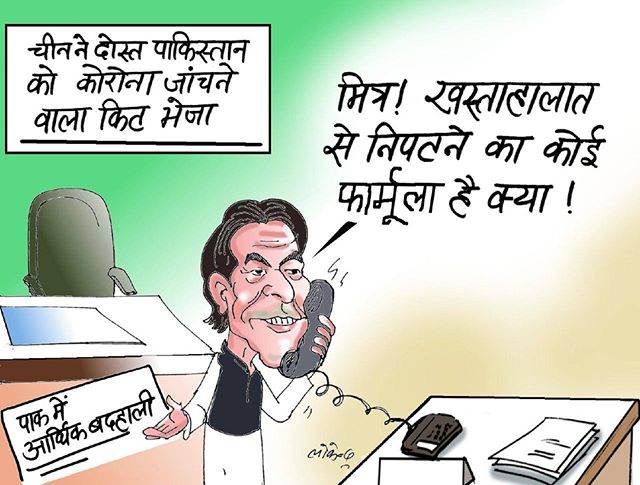 चीन ने दोस्त पाकिस्तान
को कोरोना जांचने
वाला किट भेजा
मित्र! खस्ताहालात
से निपटने का कोई
फार्मूला है क्या !
पाक में
आर्थिक बदहाली